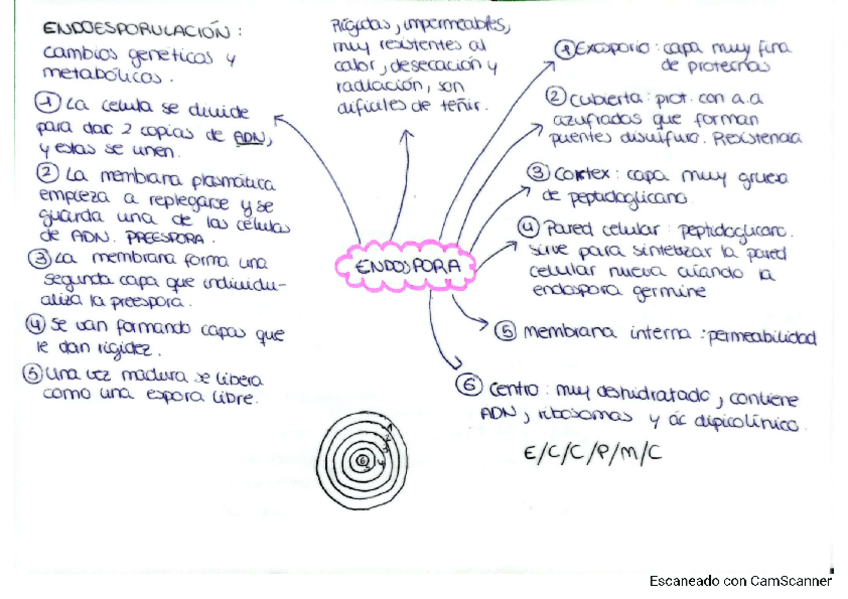 ENDOESPORULACIÓN:
cambios genéticos y
metabólicos.
① La celula se divide
para dar 2 copias de ADN,
y estas se unen.
② La membrana plasmática
empieza a replegarse y se
guarda una de las células
de ADN. PREESPORA.
③ La membrana forma una
segunda capa que individu-
aliza la preespora.
④ Se van formando capas que
le dan rigidez.
⑤ Una vez madura se libera
como una espora libre.
Rígidas, impermeables,
muy resistentes al
calor, desecación y
radiación, son
difíciles de teñir.
ENDOSPORA
① Exosporio: capa muy fina
de proteínas
② Cubierta: prot. con a.a
azufrados que forman
puentes disulfuro. Resistencia
③ Cortex: capa muy gruesa
de peptidoglicano.
④ Pared celular: peptidoglicano.
sirve para sintetizar la pared
celular nueva cuando la
endospora germine
⑤ membrana interna: permeabilidad
⑥ Centro: muy deshidratado, contiene
ADN, ribosomas y ác dipicolínico.
E/C/C/P/M/C
1
2
3
4
5
6
Escaneado con CamScanner